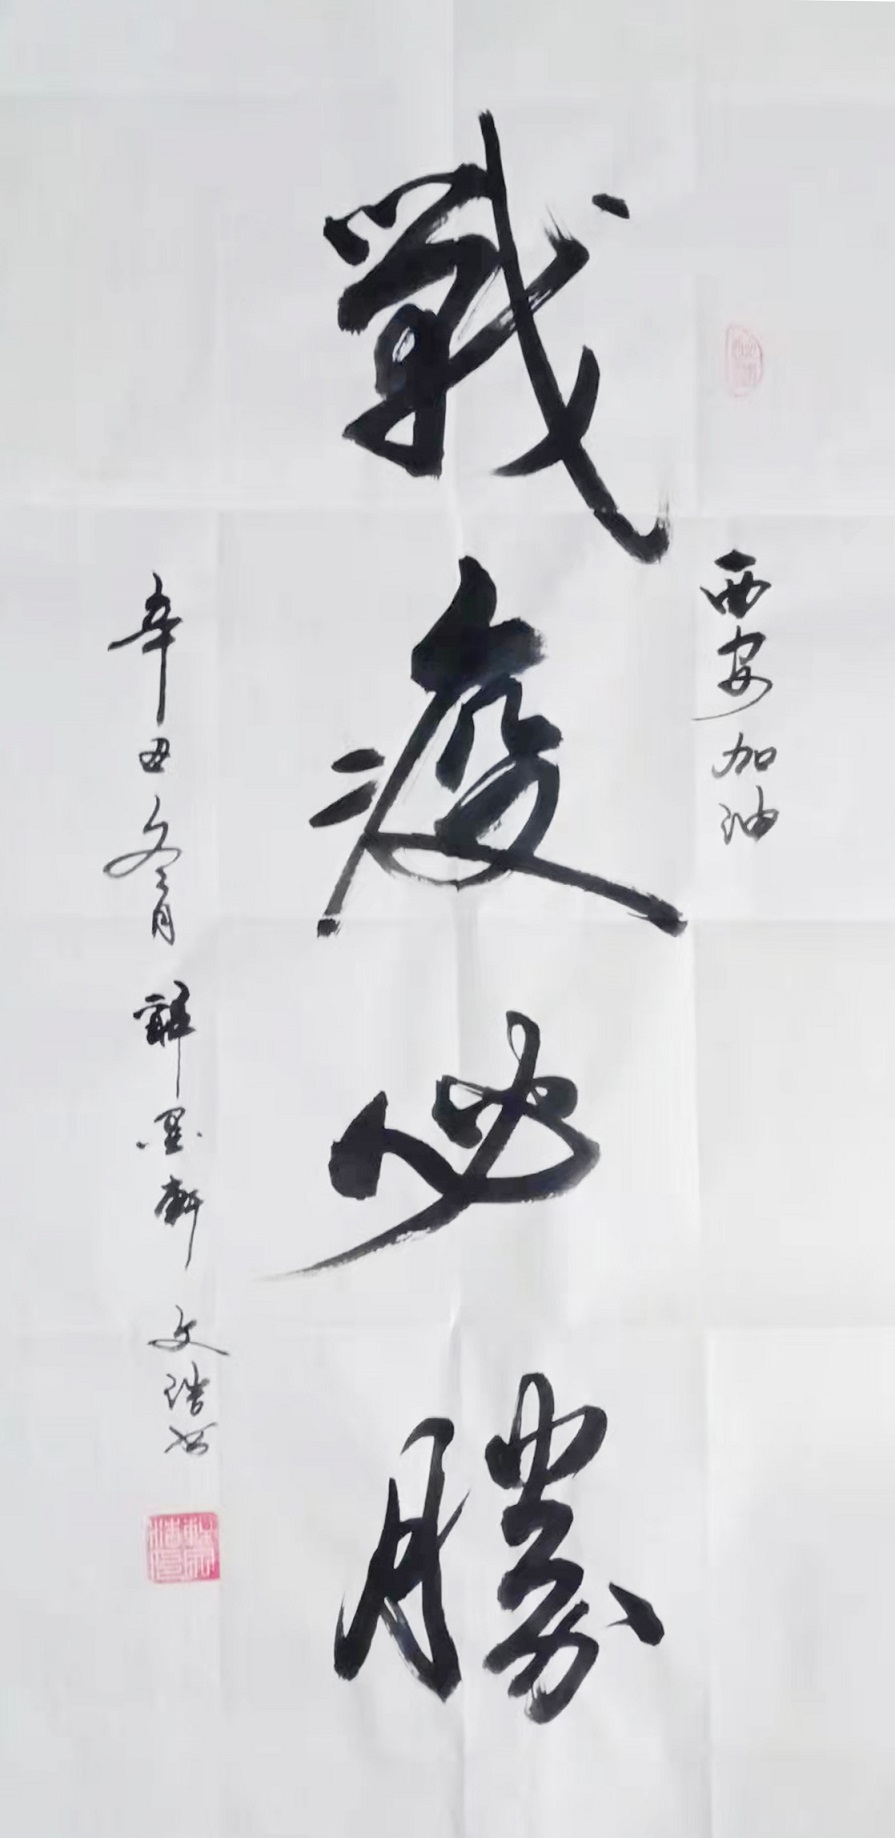 西安加油
戰疫必勝
辛丑冬月 醉墨軒 文浩书